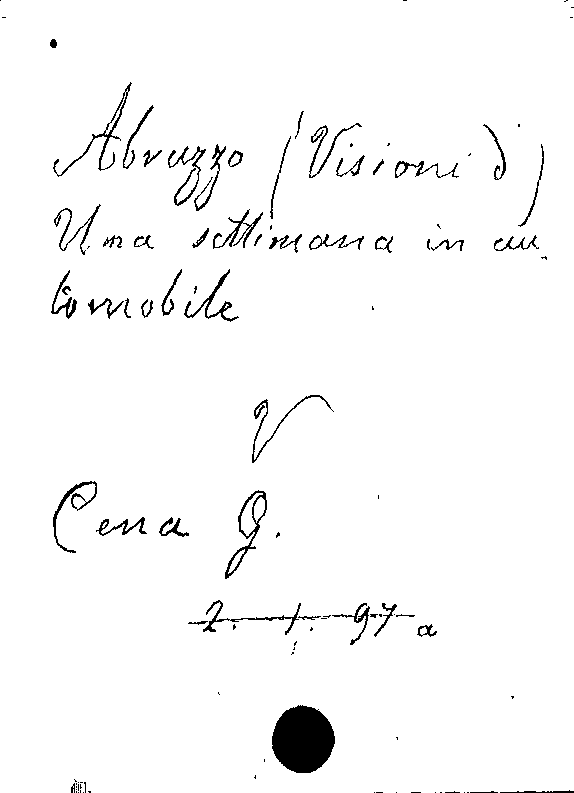 Abruzzo (Visioni d')
Una settimana in au-
tomobile
V
Cena G.
2. 1. 97 a